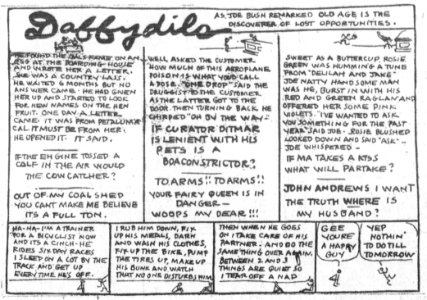 Daffydils
AS JOE BUSH REMARKED OLD AGE IS THE
DISCOVERER OF LOST OPPORTUNITIES.
HE FOUND THE GALS NAME ON AN
EGG AT THE BOARDING HOUSE
AND WROTE HER A LETTER.
SHE WAS A COUNTRY LASS.
HE WAITED 6 MONTHS BUT NO
ANSWER CAME. HE HAD GIVEN
HER UP AND STARTED TO LOOK
FOR NEW NAMES ON THE HEN
FRUIT. ONE DAY A LETTER
CAME. IT WAS FROM PETALUMA
CAL. IT MUST BE FROM HER.
HE OPENED IT. IT SAID.
IF THE ENGINE TOSSED A
CALF IN THE AIR WOULD
THE COW CATCHER?
OUT OF MY COAL SHED
YOU CANT MAKE ME BELIEVE
ITS A FULL TON.
WELL ASKED THE CUSTOMER.
HOW MUCH OF THIS AEROPLANE
POISON IS WHAT YOU CALL
A DOSE. "ONE DROP" SAID THE
DRUGGIST TO THE CUSTOMER.
AS THE LATTER GOT TO THE
DOOR THEN TURNING BACK HE
CHIRPED "OH BY THE WAY-
IF CURATOR DITMAR
IS LENIENT WITH HIS
PETS IS A
BOACONSTRICTOR?
TO ARMS!! TO ARMS!!
YOUR FAIRY QUEEN IS IN
DANGER-
WOOPS MY DEAR!!!
SWEET AS A BUTTERCUP ROSIE
GREEN WAS HUMMING A TUNE
FROM "DELILAH AND JAKE"
JOE NATTY HANDSOME MAN
WAS HE, BURST IN WITH HIS
RED AND GREEN RAGLAN AND
OFFERED HER SOME PINK
VIOLETS. "I'VE WANTED TO ASK
YOU SOMETHING FOR THE PAST
YEAR" SAID JOE. ROSIE BLUSHED
LOOKED DOWN AND SAID "ASK"..
JOE WHISPERED -
IF MA TAKES A KISS
WHAT WILL PARTAKE?
JOHN ANDREWS I WANT
THE TRUTH WHERE IS
MY HUSBAND?
HA-HA- I'M A TRAINER
FOR A BICYCLIST NOW
AND ITS A CINCH- HE
RIDES SIX DAY RACES
I SLEEP ON A COT BY THE
TRACK AND GET UP
EVERY TIME HE'S OFF.
I RUB HIM DOWN, FIX
UP HIS MEALS, DARN
AND WASH HIS CLOTHES,
FIX UP THE BIKE, PUMP
THE TIRES UP, MAKE UP
HIS BUNK AND WATCH
THAT NO ONE DISTURBS HIM
THEN WHEN HE GOES
ON I TAKE CARE OF HIS
PARTNER. AND DO THE
SAME THING OVER AGAIN.
BETWEEN 2 AND 3
THINGS ARE QUIET SO
I TEAR OFF A NAP
GEE
YOU'RE
A HAPPY
GUY
YEP
NOTHIN'
TO DO TILL
TOMORROW